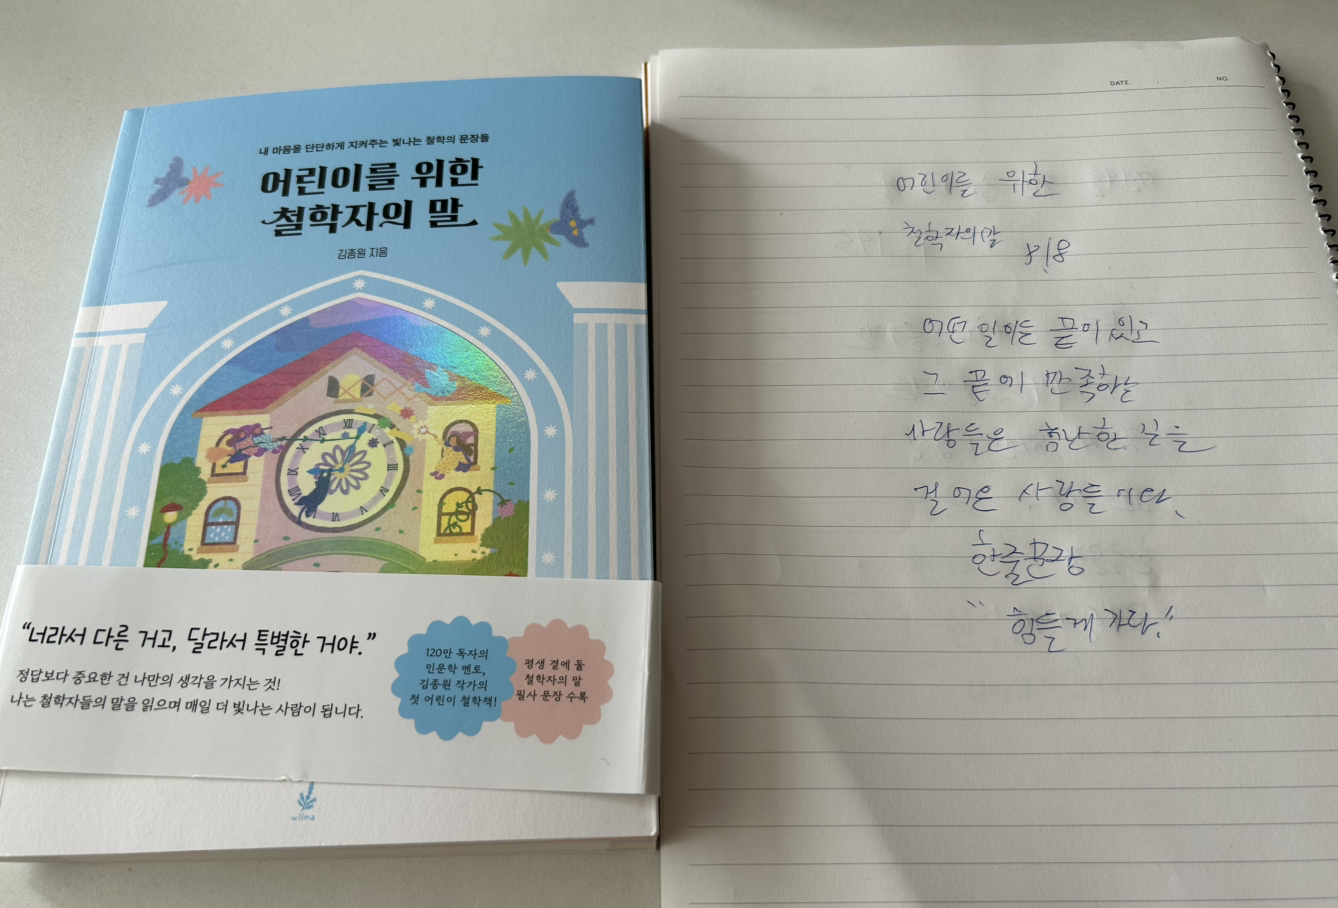 내 마음을 단단하게 지켜주는 빛나는 철학의 문장들
어린이를 위한
철학자의 말
김종원 지음
“너라서 다른 거고, 달라서 특별한 거야.”
정답보다 중요한 건 나만의 생각을 가지는 것!
나는 철학자들의 말을 읽으며 매일 더 빛나는 사람이 됩니다.
120만 독자의
인문학 멘토,
김종원 작가의
첫 어린이 철학책!
평생 곁에 둘
철학자의 말
필사 문장 수록
wilma
DATE.
NO.
어린이를 위한
철학자의 말
어떤 일이든 끝이 있고
그 끝에 만족하는
사람들은 험난한 길을
걸어온 사람들이다.
한줄문장
“힘들게 가라.”